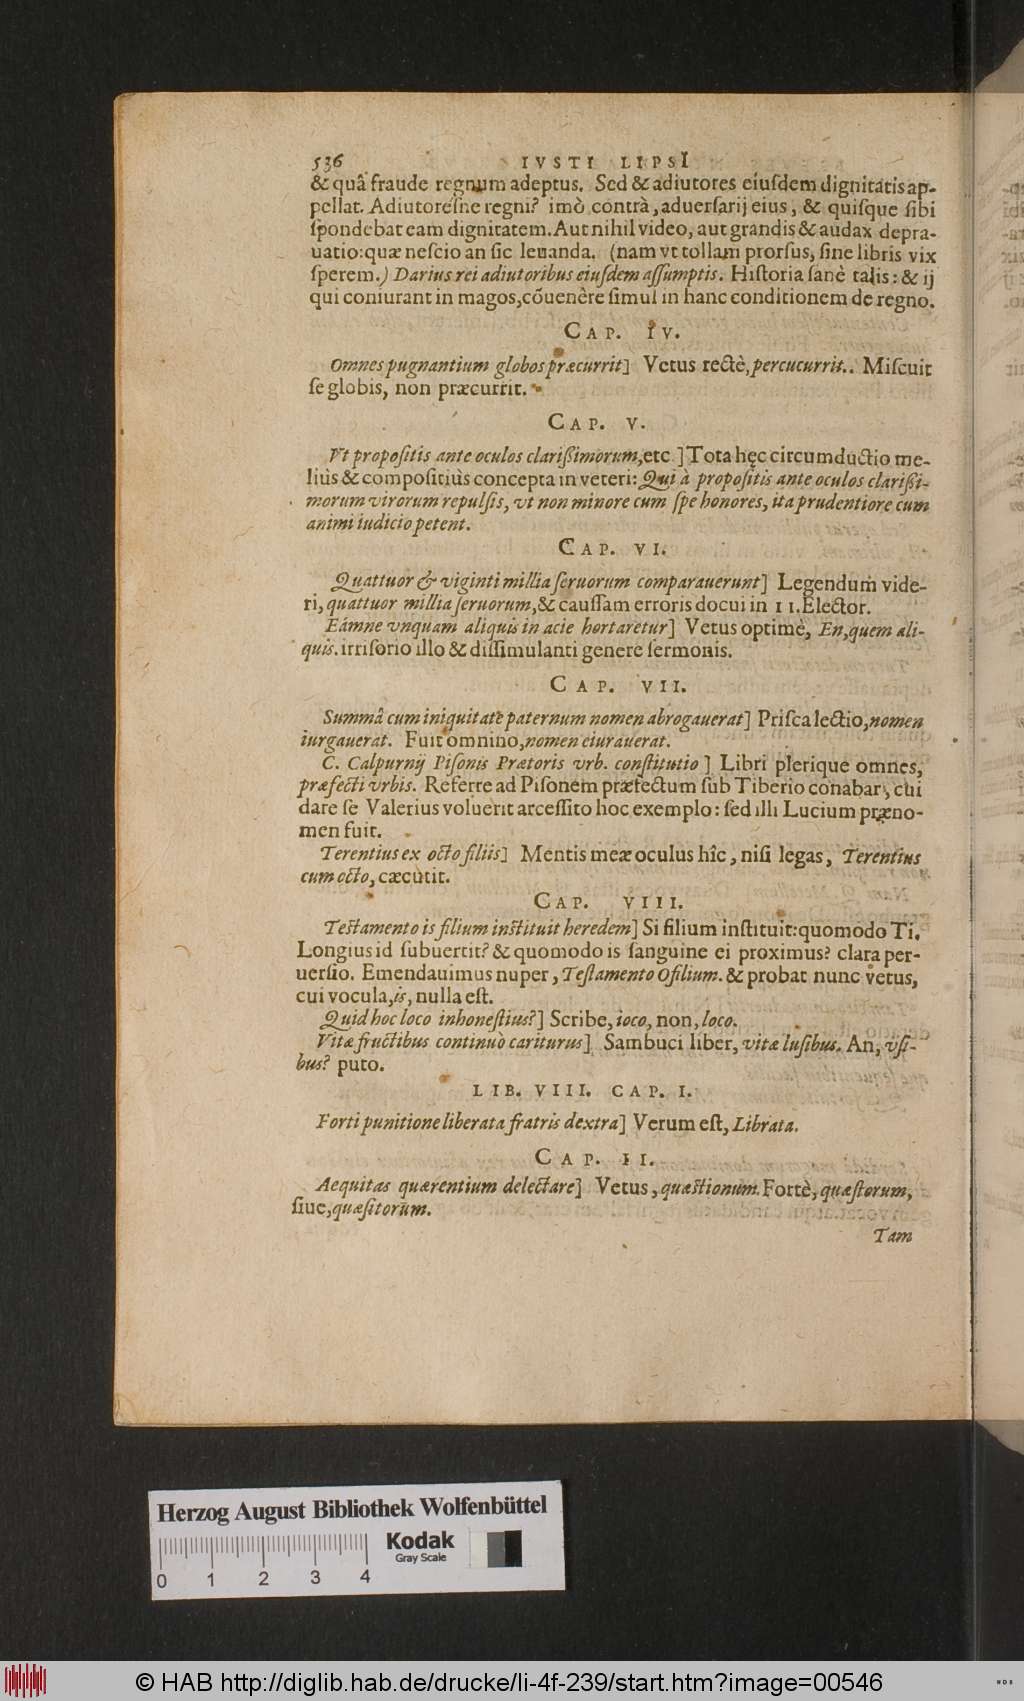 536 IVSTI LIPSI
& quâ fraude regnum adeptus. Sed & adiutores eiusdem dignitatis ap-
pellat. Adiutorésne regni? imò contrà, aduersarij eius, & quisque sibi
spondebat eam dignitatem. Aut nihil video, aut grandis & audax depra-
uatio: quæ nescio an sic leuanda. (nam vt tollam prorsus, sine libris vix
sperem.) Darius rei adiutoribus eiusdem assumptis. Historia sanè talis: & ij
qui coniurant in magos, cõuenêre simul in hanc conditionem de regno.
CAP. IV.
Omnes pugnantium globos præcurrit] Vetus rectè, percucurrit.. Miscuit
se globis, non præcurrit.
CAP. V.
Vt propositis ante oculos clarißimorum, etc.] Tota hęc circumductio me-
liùs & compositiùs concepta in veteri: Qui à propositis ante oculos clarißi-
morum virorum repulsis, vt non minore cum spe honores, ita prudentiore cum
animi iudicio petent.
CAP. VI.
Quattuor & viginti millia seruorum comparauerunt] Legendum vide-
ri, quattuor millia seruorum, & caussam erroris docui in 11. Elector.
Eámne vnquam aliquis in acie hortaretur] Vetus optimè, En, quem ali-
quis. irrisorio illo & dissimulanti genere sermonis.
CAP. VII.
Summâ cum iniquitate paternum nomen abrogauerat] Prisca lectio, nomen
iurgauerat. Fuit omnino, nomen eiurauerat.
C. Calpurnij Pisonis Prætoris vrb. constitutio] Libri plerique omnes,
præfecti vrbis. Referre ad Pisonem præfectum sub Tiberio conabar, cui
dare se Valerius voluerit arcessito hoc exemplo: sed illi Lucium præno-
men fuit.
Terentius ex octo filiis] Mentis meæ oculus hîc, nisi legas, Terentius
cum octo, cæcutit.
CAP. VIII.
Testamento is filium instituit heredem] Si filium instituit: quomodo Ti.
Longius id subuertit? & quomodo is sanguine ei proximus? clara per-
uersio. Emendauimus nuper, Testamento Ofilium. & probat nunc vetus,
cui vocula, is, nulla est.
Quid hoc loco inhonestius?] Scribe, ioco, non, loco.
Vitæ fructibus continuò cariturus] Sambuci liber, vitæ lusibus. An, vsi-
bus? puto.
LIB. VIII. CAP. I.
Forti punitione liberata fratris dextra] Verum est, Librata.
CAP. II.
Aequitas quærentium delectare] Vetus, quæstionum. Fortè, quæstorum,
siue, quæsitorum.
Tam
Herzog August Bibliothek Wolfenbüttel
Kodak
Gray Scale
0 1 2 3 4
© HAB http://diglib.hab.de/drucke/li-4f-239/start.htm?image=00546